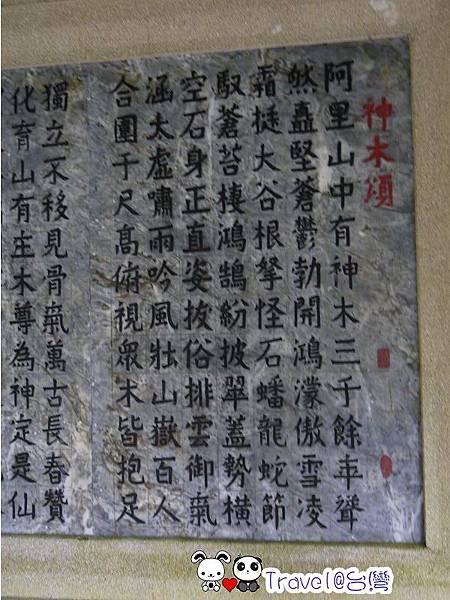 神木頌
阿里山中有神木三千餘年聳
然矗堅蒼鬱勃開鴻濛傲雪凌
霜挺大谷根拏怪石蟠龍蛇節
馭蒼苔棲鴻鵠紛披翠蓋勢橫
空石身正直姿拔俗排雲御氣
涵太虛嘯雨吟風壯山嶽百人
合圍千尺高俯視眾木皆抱足
獨立不移見骨氣萬古長春贊
化育山有主木尊為神定是仙
Travel@台灣